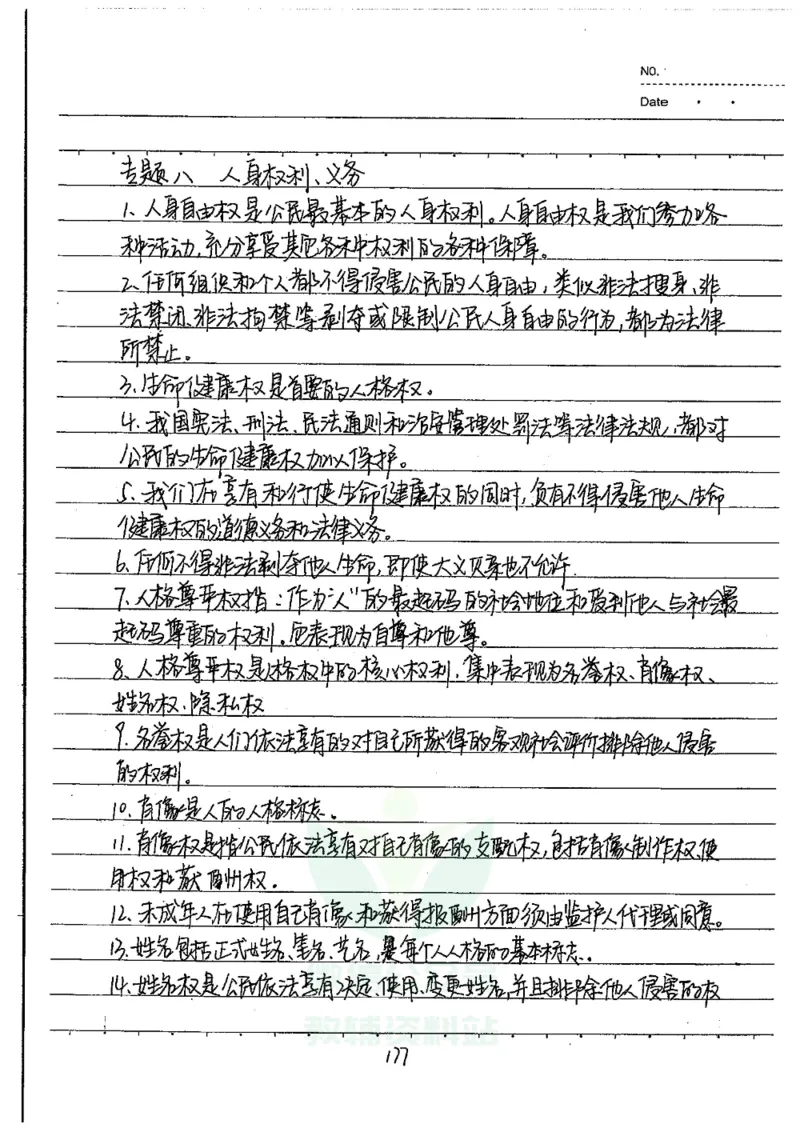 No.
Date
专题八 人身权利、义务
1、人身自由权是公民最基本的人身权利。人身自由权是我们参加各
种活动,充分享受其他各种权利的各种保障。
2、任何组织和个人都不得侵害公民的人身自由,类似非法搜身、非
法禁闭、非法拘禁等剥夺或限制公民人身自由的行为,都为法律
所禁止。
3、生命健康权是首要的人格权。
4、我国宪法、刑法、民法通则和治安管理处罚法等法律法规,都对
公民的生命健康权加以保护。
5、我们在享有和行使生命健康权的同时,负有不得侵害他人生命
健康权的道德义务和法律义务。
6、任何不得非法剥夺他人生命,即使大义灭亲也不允许.
7、人格尊严权指:作为"人"的最起码的社会地位和受到他人与社会最
起码尊重的权利。它表现为自尊和他尊。
8、人格尊严权是人格权中的核心权利,集中表现为名誉权、肖像权、
姓名权、隐私权
9、名誉权是人们依法享有的对自己所获得的客观社会评价排除他人侵害
的权利。
10、肖像是人的人格标志。
11、肖像权是指公民依法享有对自己肖像的支配权,包括肖像制作权、使
用权和获酬权.
12、未成年人在使用自己肖像和获得报酬方面须由监护人代理或同意。
13、姓名包括正式姓名、笔名、艺名,是每个人人格的基本标志。
14、姓名权是公民依法享有决定、使用、变更姓名,并且排除他人侵害的权
教辅资料站
177